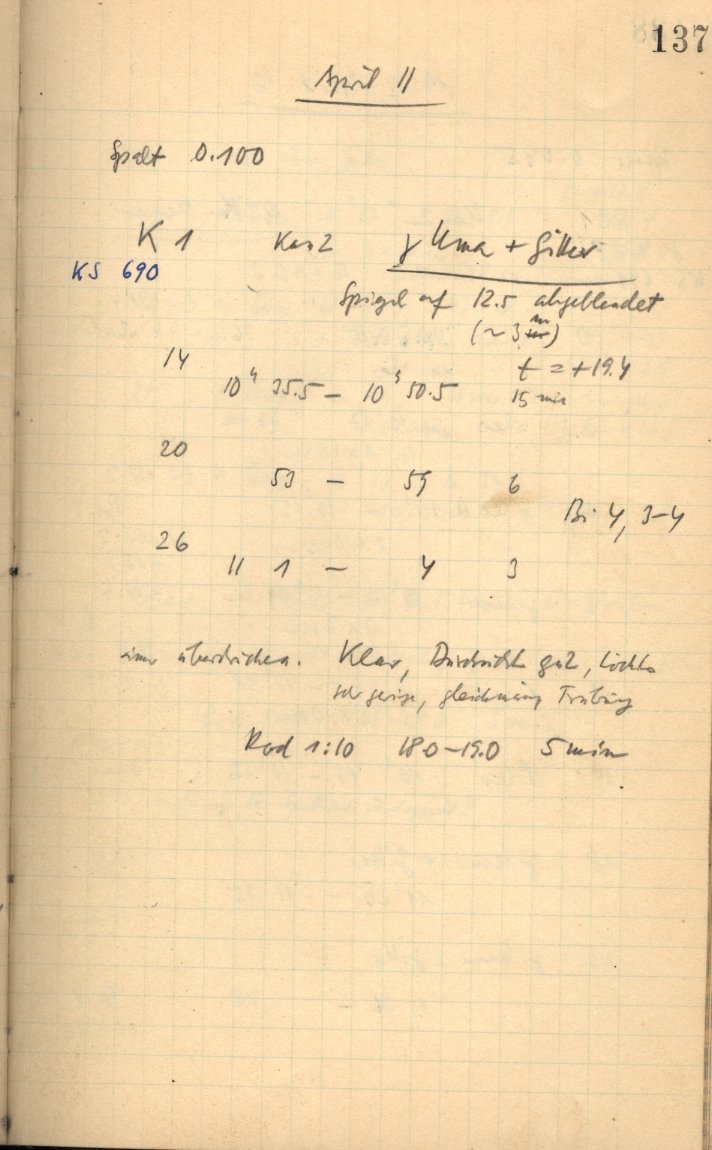 137
April 11
Spalt 0.100
K 1 Kas 2 γ Uma + Gitter
KS 690
Spiegel auf 12.5 abgeblendet
(~3m)
14 t = +19.4
10h 35.5 – 10h 50.5 15 min
20
53 – 59 6
Bi 4, 3–4
26
11 1 – 4 3
Klar, Durchsicht gut,
sehr geringe, gleichmässig Trübung
Rad 1:10 18.0–19.0 5 min